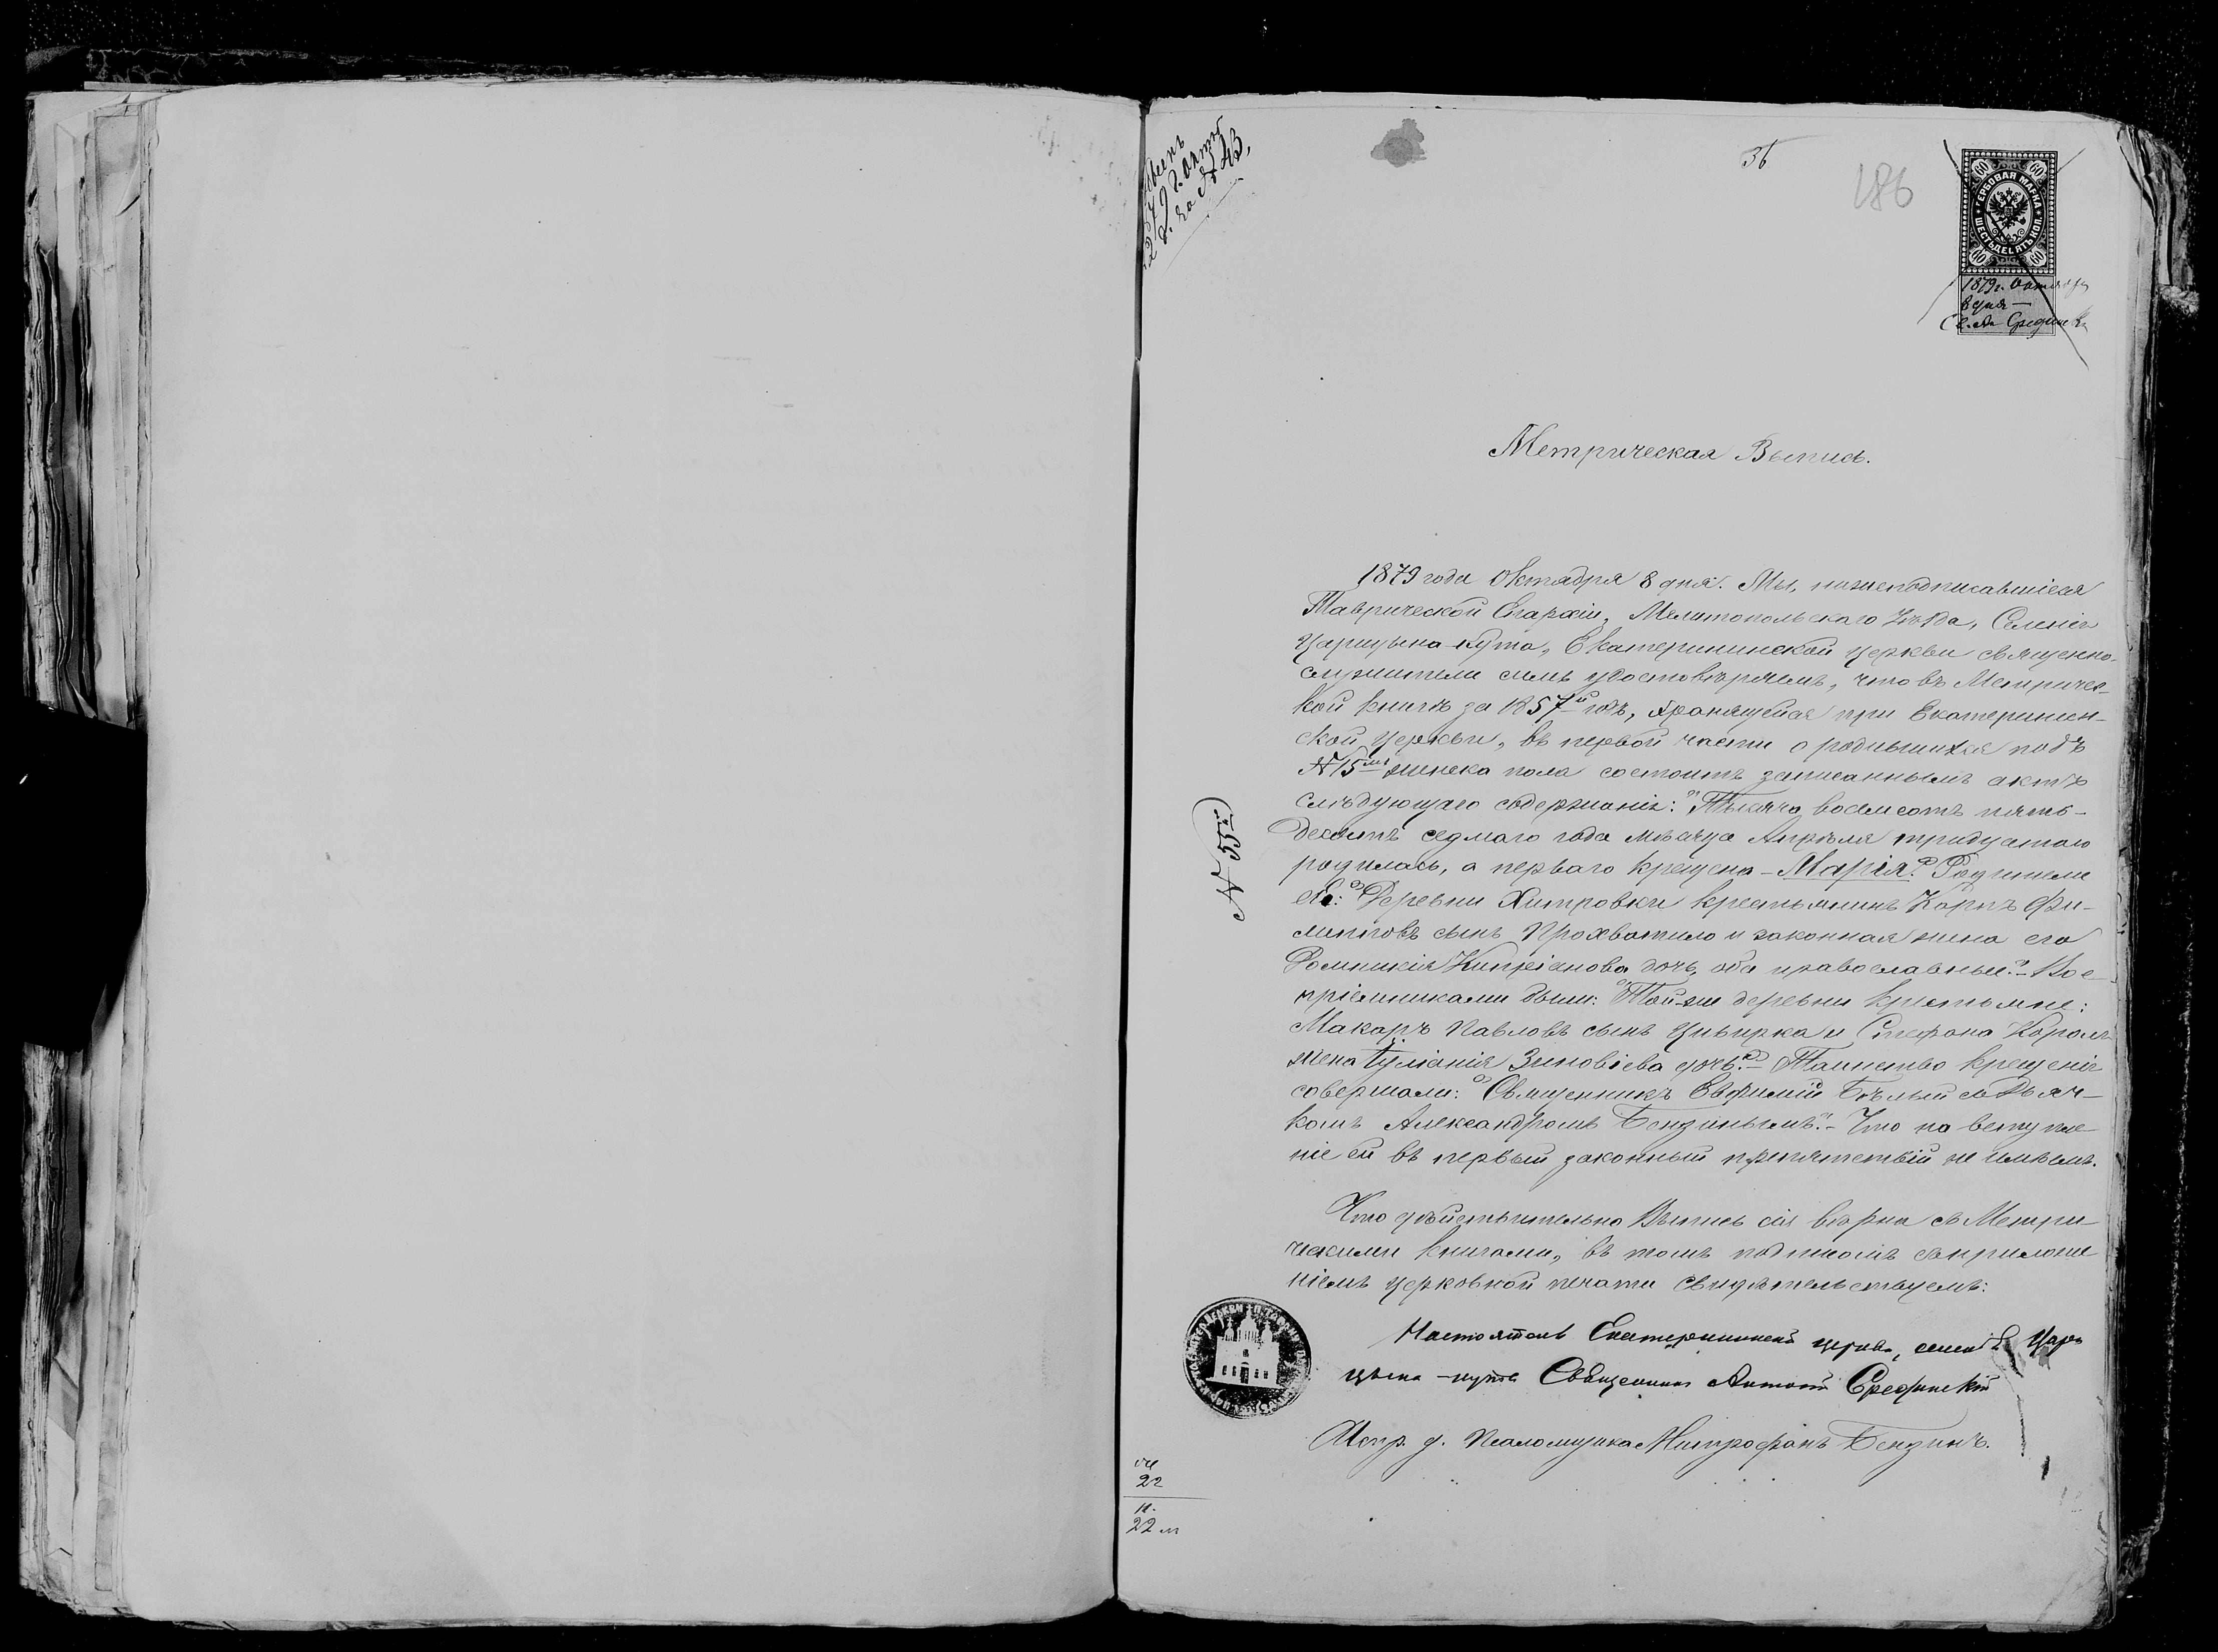 36
186
60 60
ГЕРБОВАЯ МАРКА
ШЕСТЬДЕСЯТЪ КОП.
60 60
1879 г. Октября
8 дня —
№ 43.
Метрическая Выпись.
1879 года Октября 8 дня. Мы, нижеподписавшіеся
Таврической Епархіи, Мелитопольскаго Уѣзда, Селенія
Царицына-Кута, Екатерининской церкви священно-
служители симъ удостовѣряемъ, что въ Метричес-
кой книгѣ за 1857й годъ, хранящейся при Екатеринин-
ской церкви, въ первой части о родившихся подъ
№ 15мъ женска пола состоитъ записаннымъ актъ
слѣдующаго содержанія: "Тысяча восемсотъ пять-
десятъ седмаго года мѣсяца Апрѣля тридцатого
родилась, а перваго крещена - Марія." Родители
ея: "Деревни Хитровки крестьянинъ Карпъ Фи-
липповъ сынъ Прохватило и законная жена его
Домникія Кипріанова дочь, оба православные." - Вос-
пріемниками были: "Той-же деревни крестьяне:
Макаръ Павловъ сынъ Цывирка и Стефана Короля
жена Іуліанія Зиновіева дочь." - Таинство крещенія
совершали: "Священникъ Евфимій Бѣлый съ Дьяч-
комъ Александромъ Бендинымъ". - Что на вступле
ніе ей въ первый законный препятствій не имѣемъ.
№ 55й
Что дѣйствительно Выпись сія вѣрна съ Метри
ческими книгами, въ томъ подписомъ съ приложе
ніемъ церковной печати свидѣтельствуемъ:
Настоятель Екатерининской церкви, селенія Цари
цына-кута Священникъ Антоній Срединскій
Испр. д. Псаломщика Митрофанъ Бендинъ.
22
22